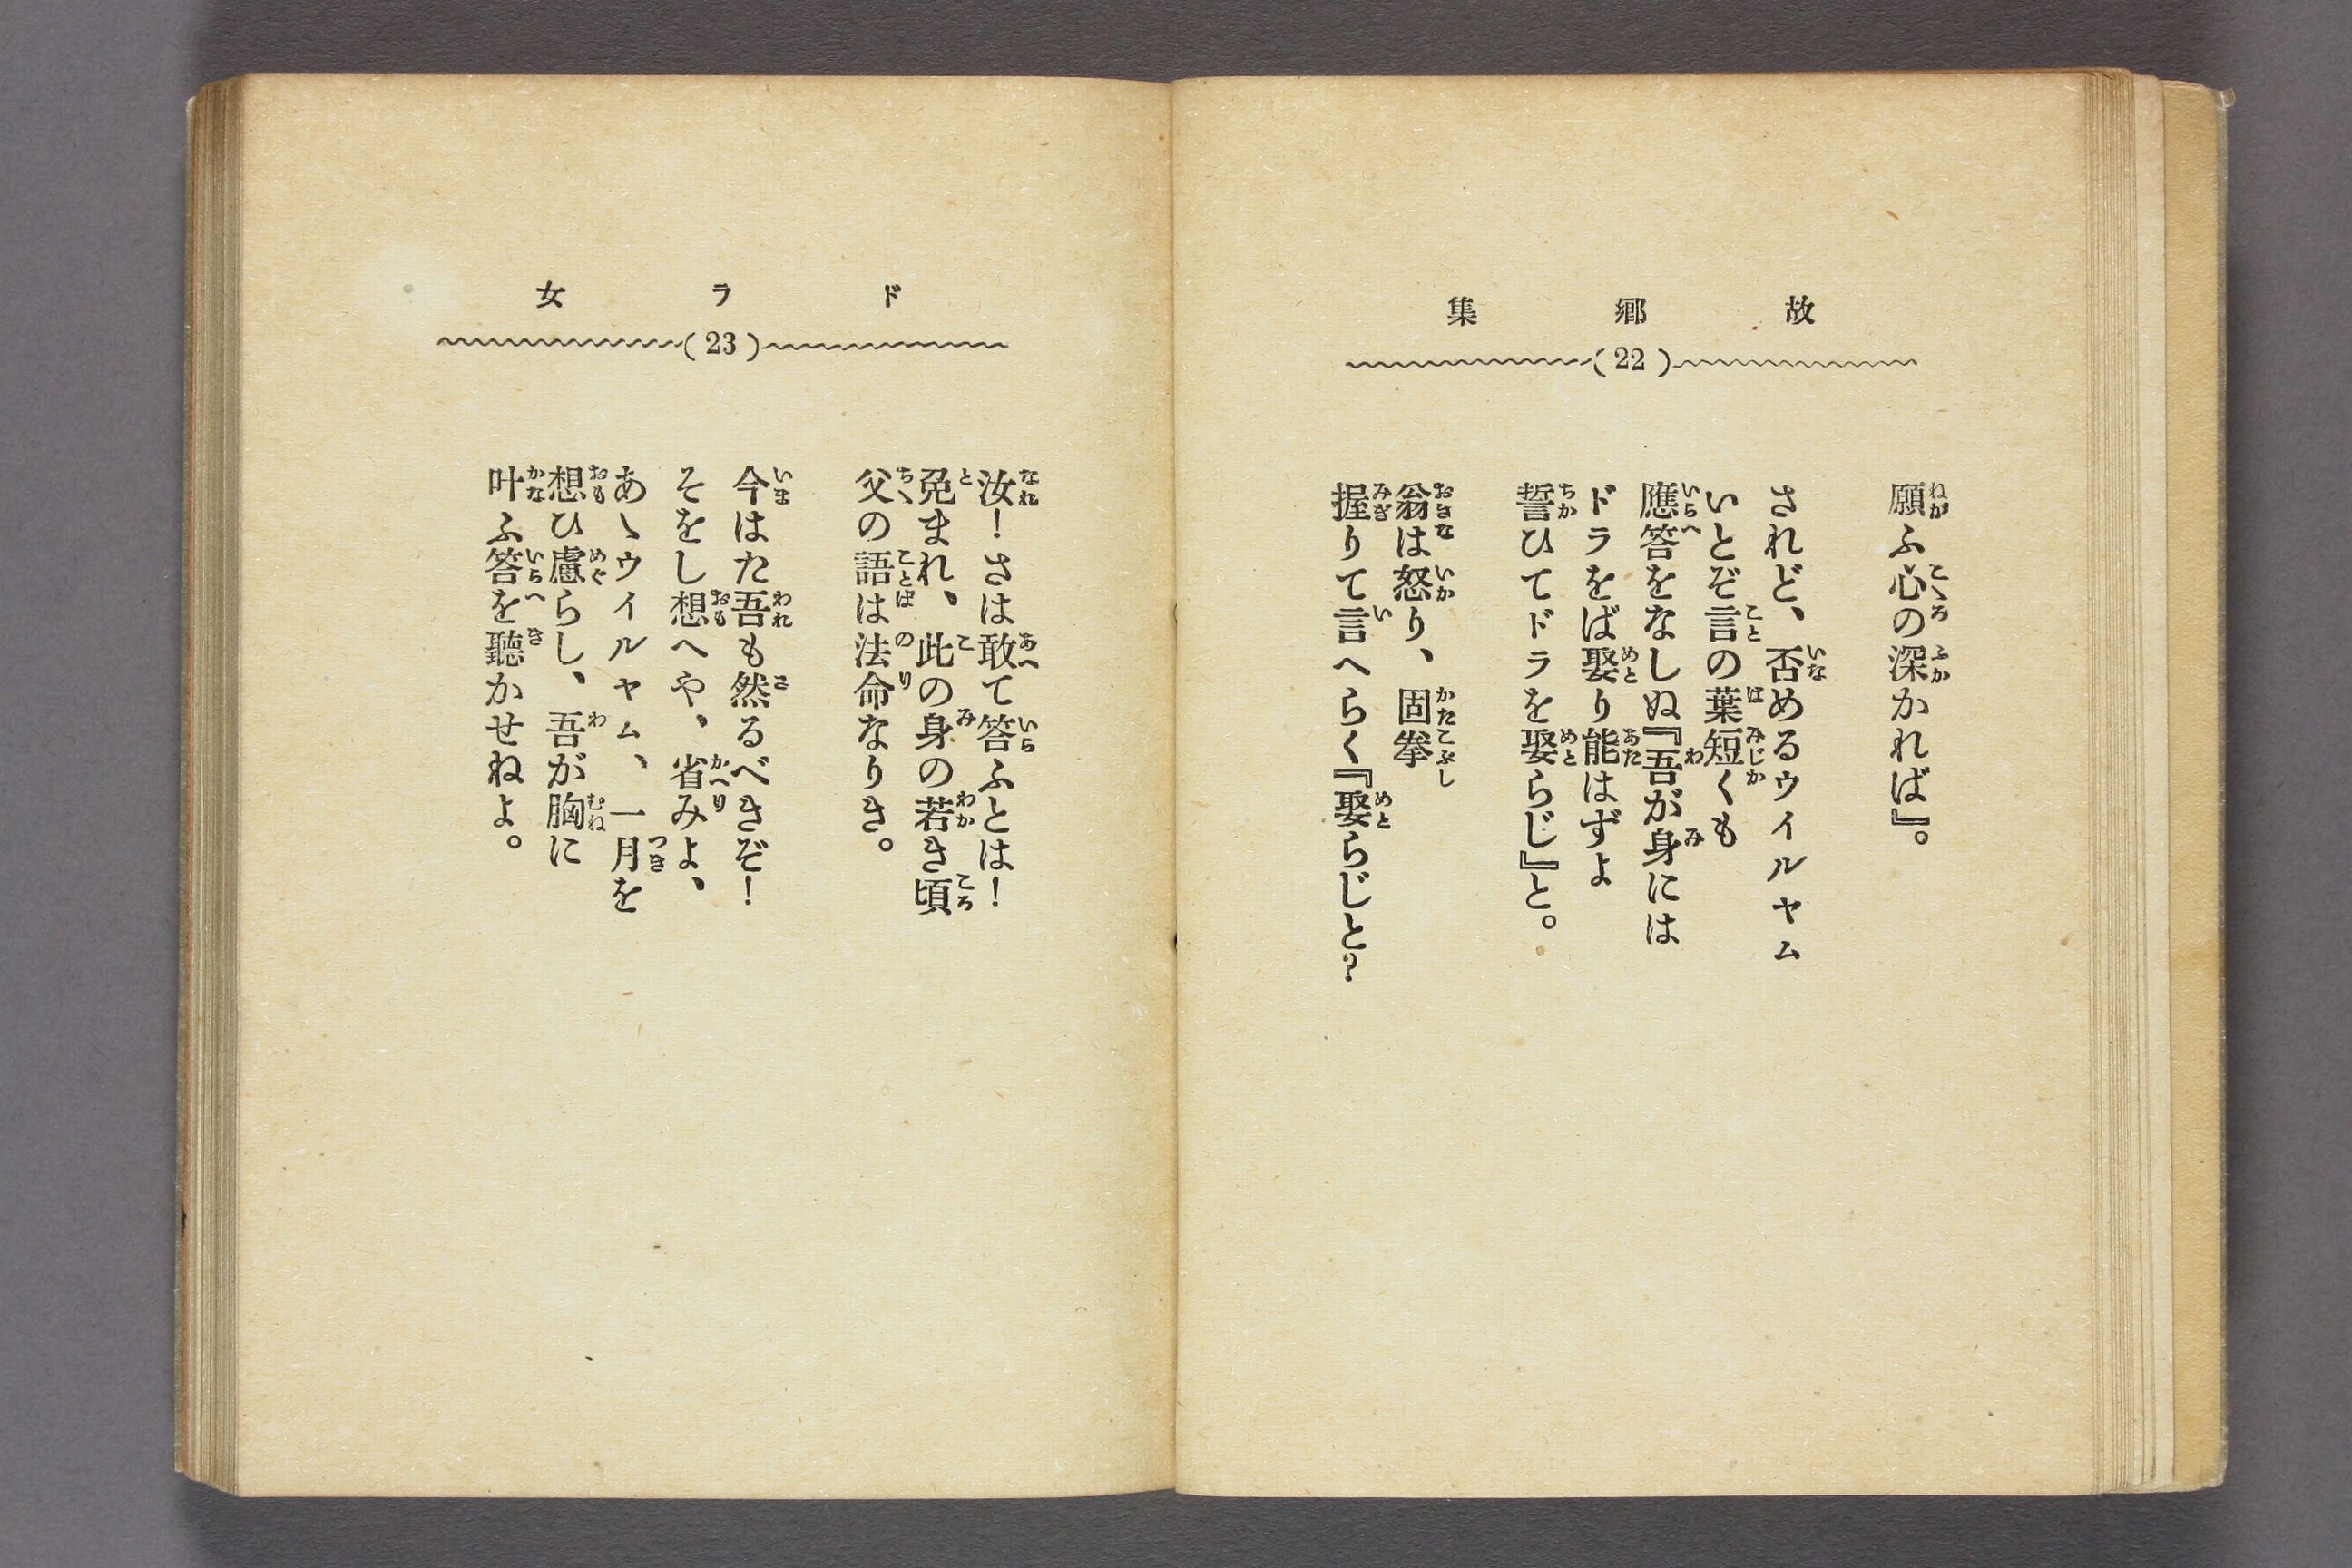 故郷集
(22)
願ふ心の深かれば』。
されど、否めるウイルヤム
いとぞ言の葉短くも
應答をなしぬ『吾が身には
ドラをば娶り能はずよ
誓ひてドラを娶らじ』と。
翁は怒り、固拳
握りて言へらく『娶らじと?
ドラ女
(23)
汝!さは敢て答ふとは!
免まれ、此の身の若き頃
父の語は法命なりき。
今はた吾も然るべきぞ!
そをし想へや、省みよ、
あゝウイルヤム、一月を
想ひ慮らし、吾が胸に
叶ふ答を聽かせねよ。